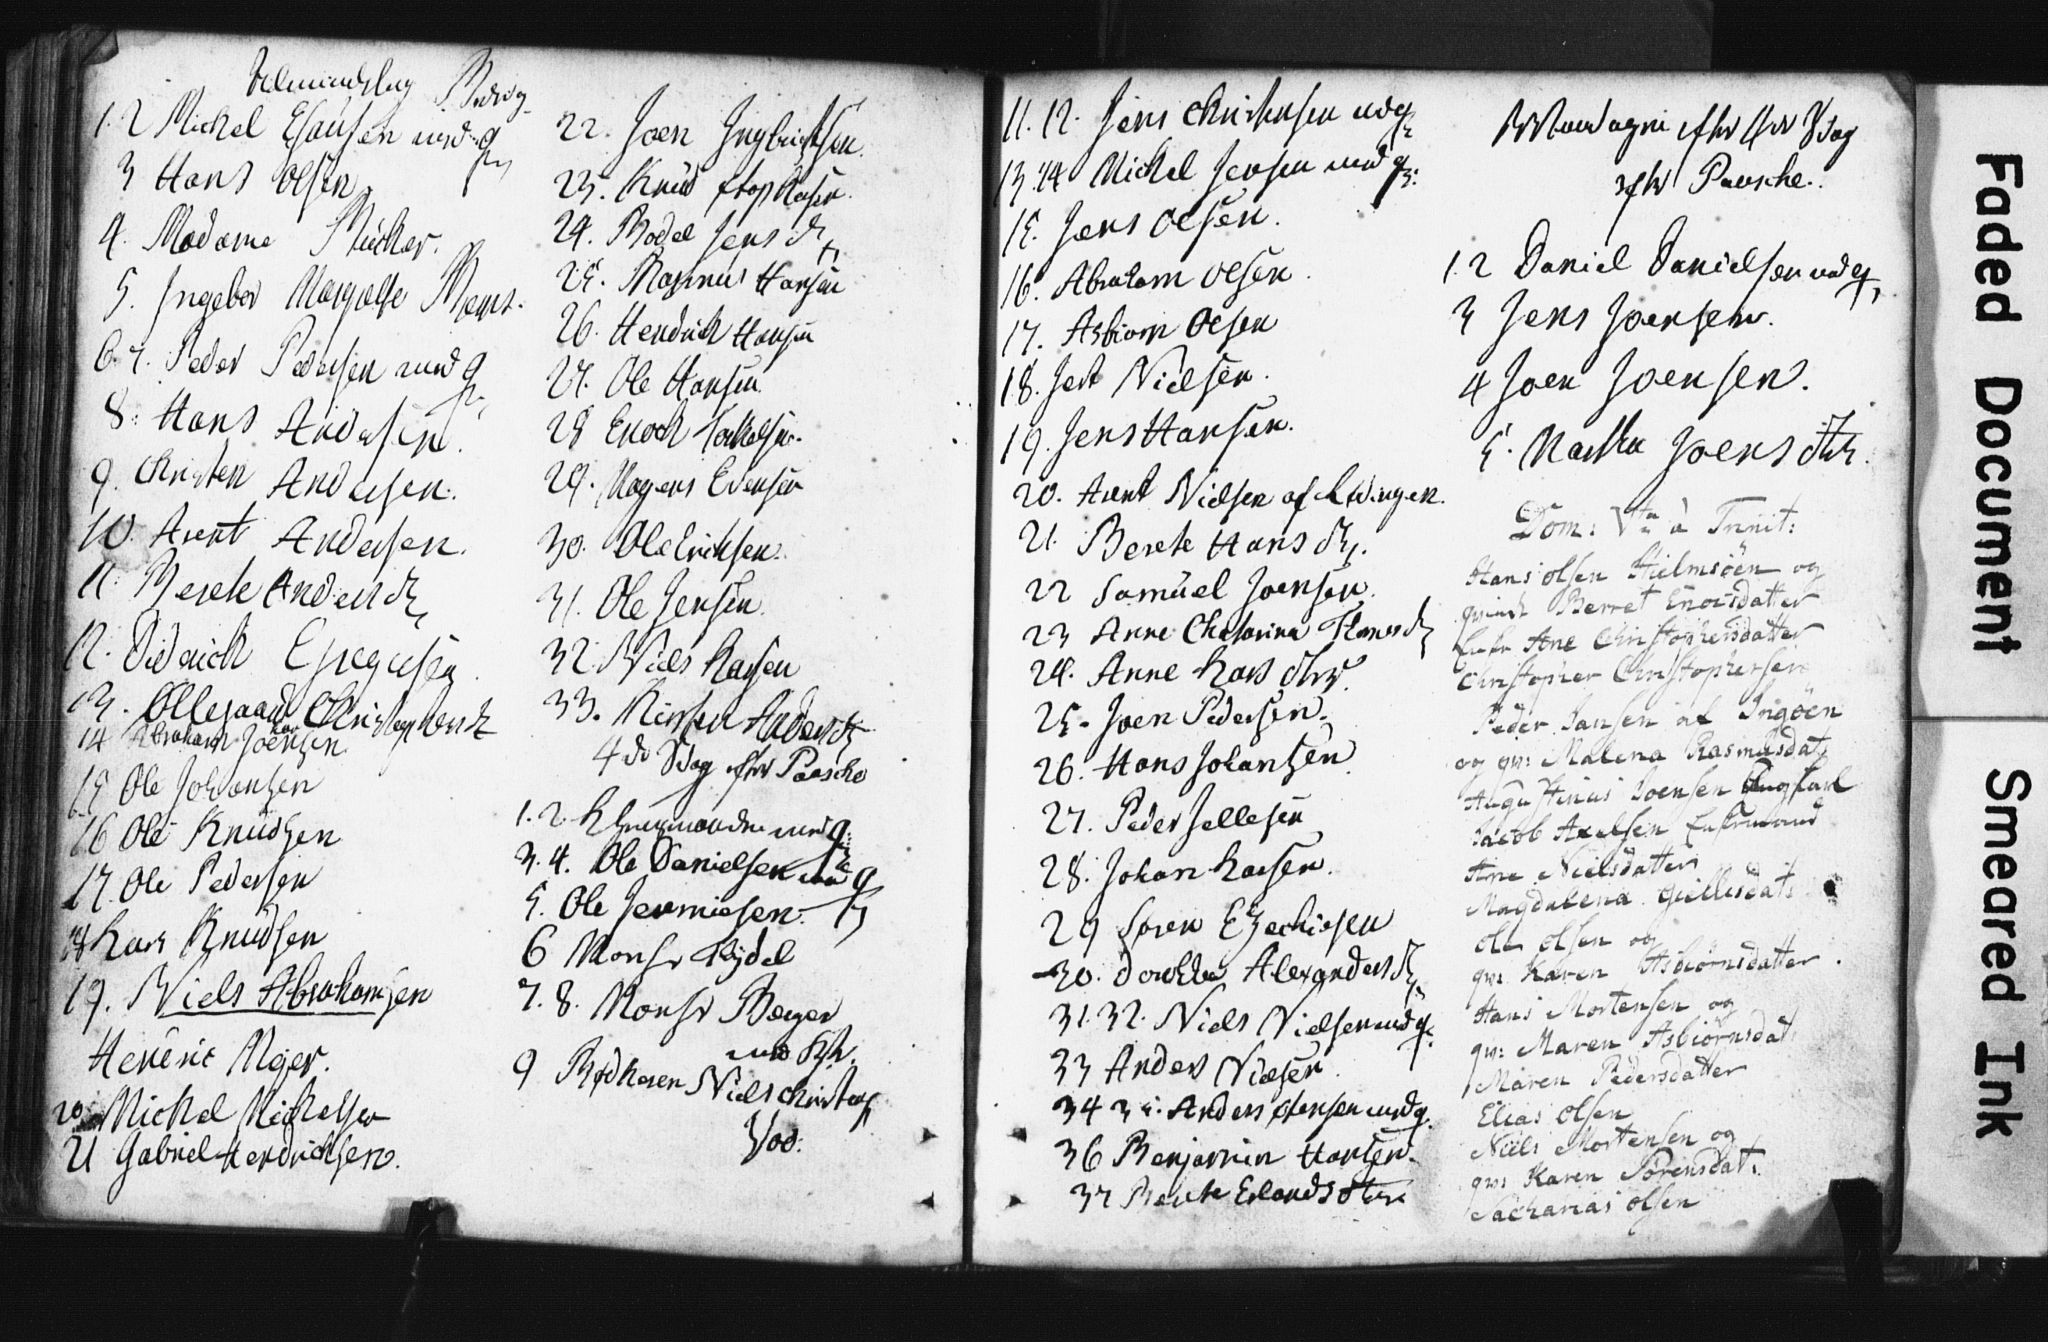 1. 2 Michel Esausen med q
3 Hans Olsen
4. Madame
5. Ingebor Margrethe
6. 7. Peder Pedersen med q
8. Hans Andersen.
9. Christen Andersen.
10. Arent Andersen.
11. Berete Andersd
12. Diderich
13. Ollegaard Christophersd
14 Abraham Joensen
15 Ole Johansen
16 Ole Knudsen
17. Ole Pedersen
18 Lars Knudsen
19. Niels Abrahamsen
Meger.
20 Michel Michelsen
21 Gabriel Hendrichsen.
22. Joen Ingbrichtsen.
23. Knud
24. Bodel Jensd
25. Rasmus Hansen
26. Hendrich Hansen
27. Ole Hansen
28 Enoch Torkelsen.
29. Mogens Evensen
30. Ole Erichsen.
31. Ole Jensen.
32. Niels Larsen
33. Kirsten Andersd
4de Sdag efter Paasche
1. 2. med q:
3. 4. Ole Danielsen med q
5. Ole Jermiesen.
6 Monsr Rydel
7. 8. Monsr Berger
med
9 Niels
11. 12. Jens Christensen med q
13. 14 Michel Jensen med q:
15. Jens Olsen.
16. Abraham Olsen.
17. Asbiorn Olsen
18. Nielsen.
19. Jens Hansen.
20. Arent Nielsen af
21. Berete Hansd.
22 Samuel Joensen.
23 Anne Chatarina
24. Anne Lars dtr
25. Joen Pedersen.
26. Hans Johansen
27. Peder Jellesen
28. Johan Larsen.
29 Søren Ezechiesen
30. Alexandersd
31. 32. Niels Nielsen med q.
33 Anders Nielsen
34 35. Anders med q.
36 Benjamin Hansen.
37 Berete Erlands dtr
efter 4de Sdag
efter Paasche.
1. 2 Daniel Danielsen med q
3 Jens Joensen.
4 Joen Joensen.
5. Martha Joens dtr.
Dom: Vta à Trinit:
Hans Olsen Hielmsöen og
qvinde Berret Enocsdatter
Enke Ane Christophersdatter
Christopher Christophersen
Peder Jansen af Ingöen
og qv: Malena Rasmusdat
Augustinus Joensen Ungkarl
Jacob Axelsen Enkemand
Ane Nielsdatter
Magdalena Giellisdat:
Ole Olsen og
qv: Karen Asbiörnsdatter.
Hans Mortensen og
qv: Maren Asbiörnsdat:
Maren Pedersdatter
Elias Olsen
Niels Mortensen og
qv: Karen Sörensdat:
Sacharias Olsen
Faded Document
Smeared Ink